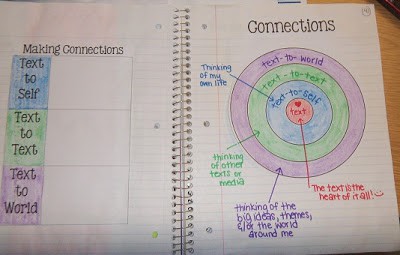 Making Connections
Text
to
Self
Text
to
Text
Text
to
World
Connections
text-to-world
text-to-text
text-to-self
text
Thinking
of my
own life
thinking
of other
texts or
media
The text is the
heart of it all!
thinking of the
big ideas, themes,
&/or the world
around me